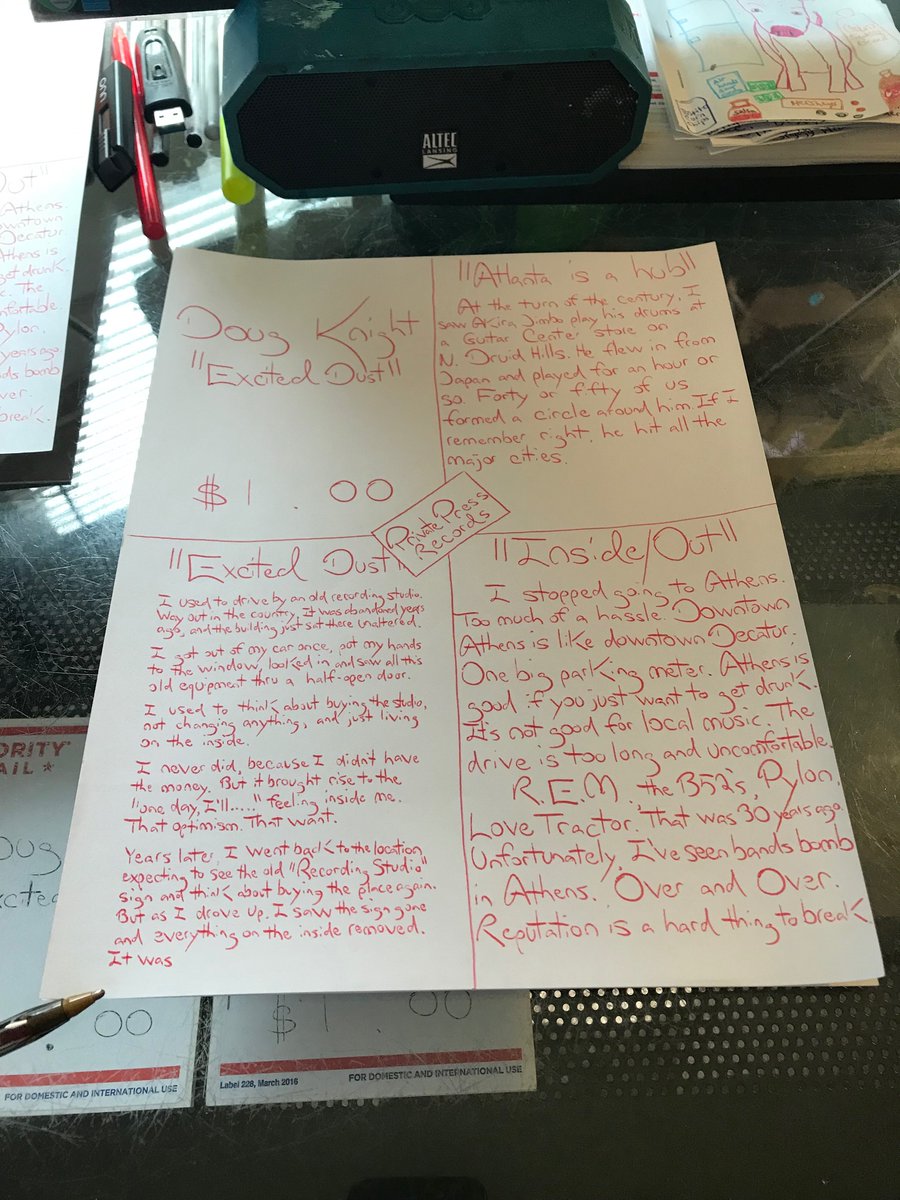 Out"
Athens.
owntown
Decatur.
Athens is
get drunk.
The
nfortable
Pylon,
years ago
nds bomb
ver.
break.
ALTEC
LANSING
Salsa
Doug Knight
"Excited Dust"
$1.00
"Atlanta is a hub"
At the turn of the century, I
saw Akira Jimbo play his drums at
a Guitar Center store on
N. Druid Hills. He flew in from
Japan and played for an hour or
so. Forty or fifty of us
formed a circle around him. If I
remember right, he hit all the
major cities.
Private Press
Records
"Excited Dust"
I used to drive by an old recording studio.
Way out in the country. It was abandoned years
ago, and the building just sat there unaltered.
I got out of my car once, put my hands
to the window, looked in and saw all this
old equipment thru a half-open door.
I used to think about buying the studio,
not changing anything, and just living
on the inside.
I never did, because I didn't have
the money. But it brought rise to the
"one day, I'll....." feeling inside me.
That optimism. That want.
Years later, I went back to the location
expecting to see the old "Recording Studio"
sign and think about buying the place again.
But as I drove up, I saw the sign gone
and everything on the inside removed.
It was
"Inside/Out"
I stopped going to Athens.
Too much of a hassle. Downtown
Athens is like downtown Decator.
One big parking meter. Athens is
good if you just want to get drunk.
It's not good for local music. The
drive is too long and uncomfortable.
R.E.M, the B52's, Pylon,
Love Tractor. That was 30 years ago.
Unfortunately, I've seen bands bomb
in Athens. Over and Over.
Reputation is a hard thing to break
ORITY
AIL
oug
xcited
.00
FOR DOMESTIC AND INTERNATIONAL USE
$1.00
Label 228, March 2016
FOR DOMESTIC AND INTERNATIONAL USE